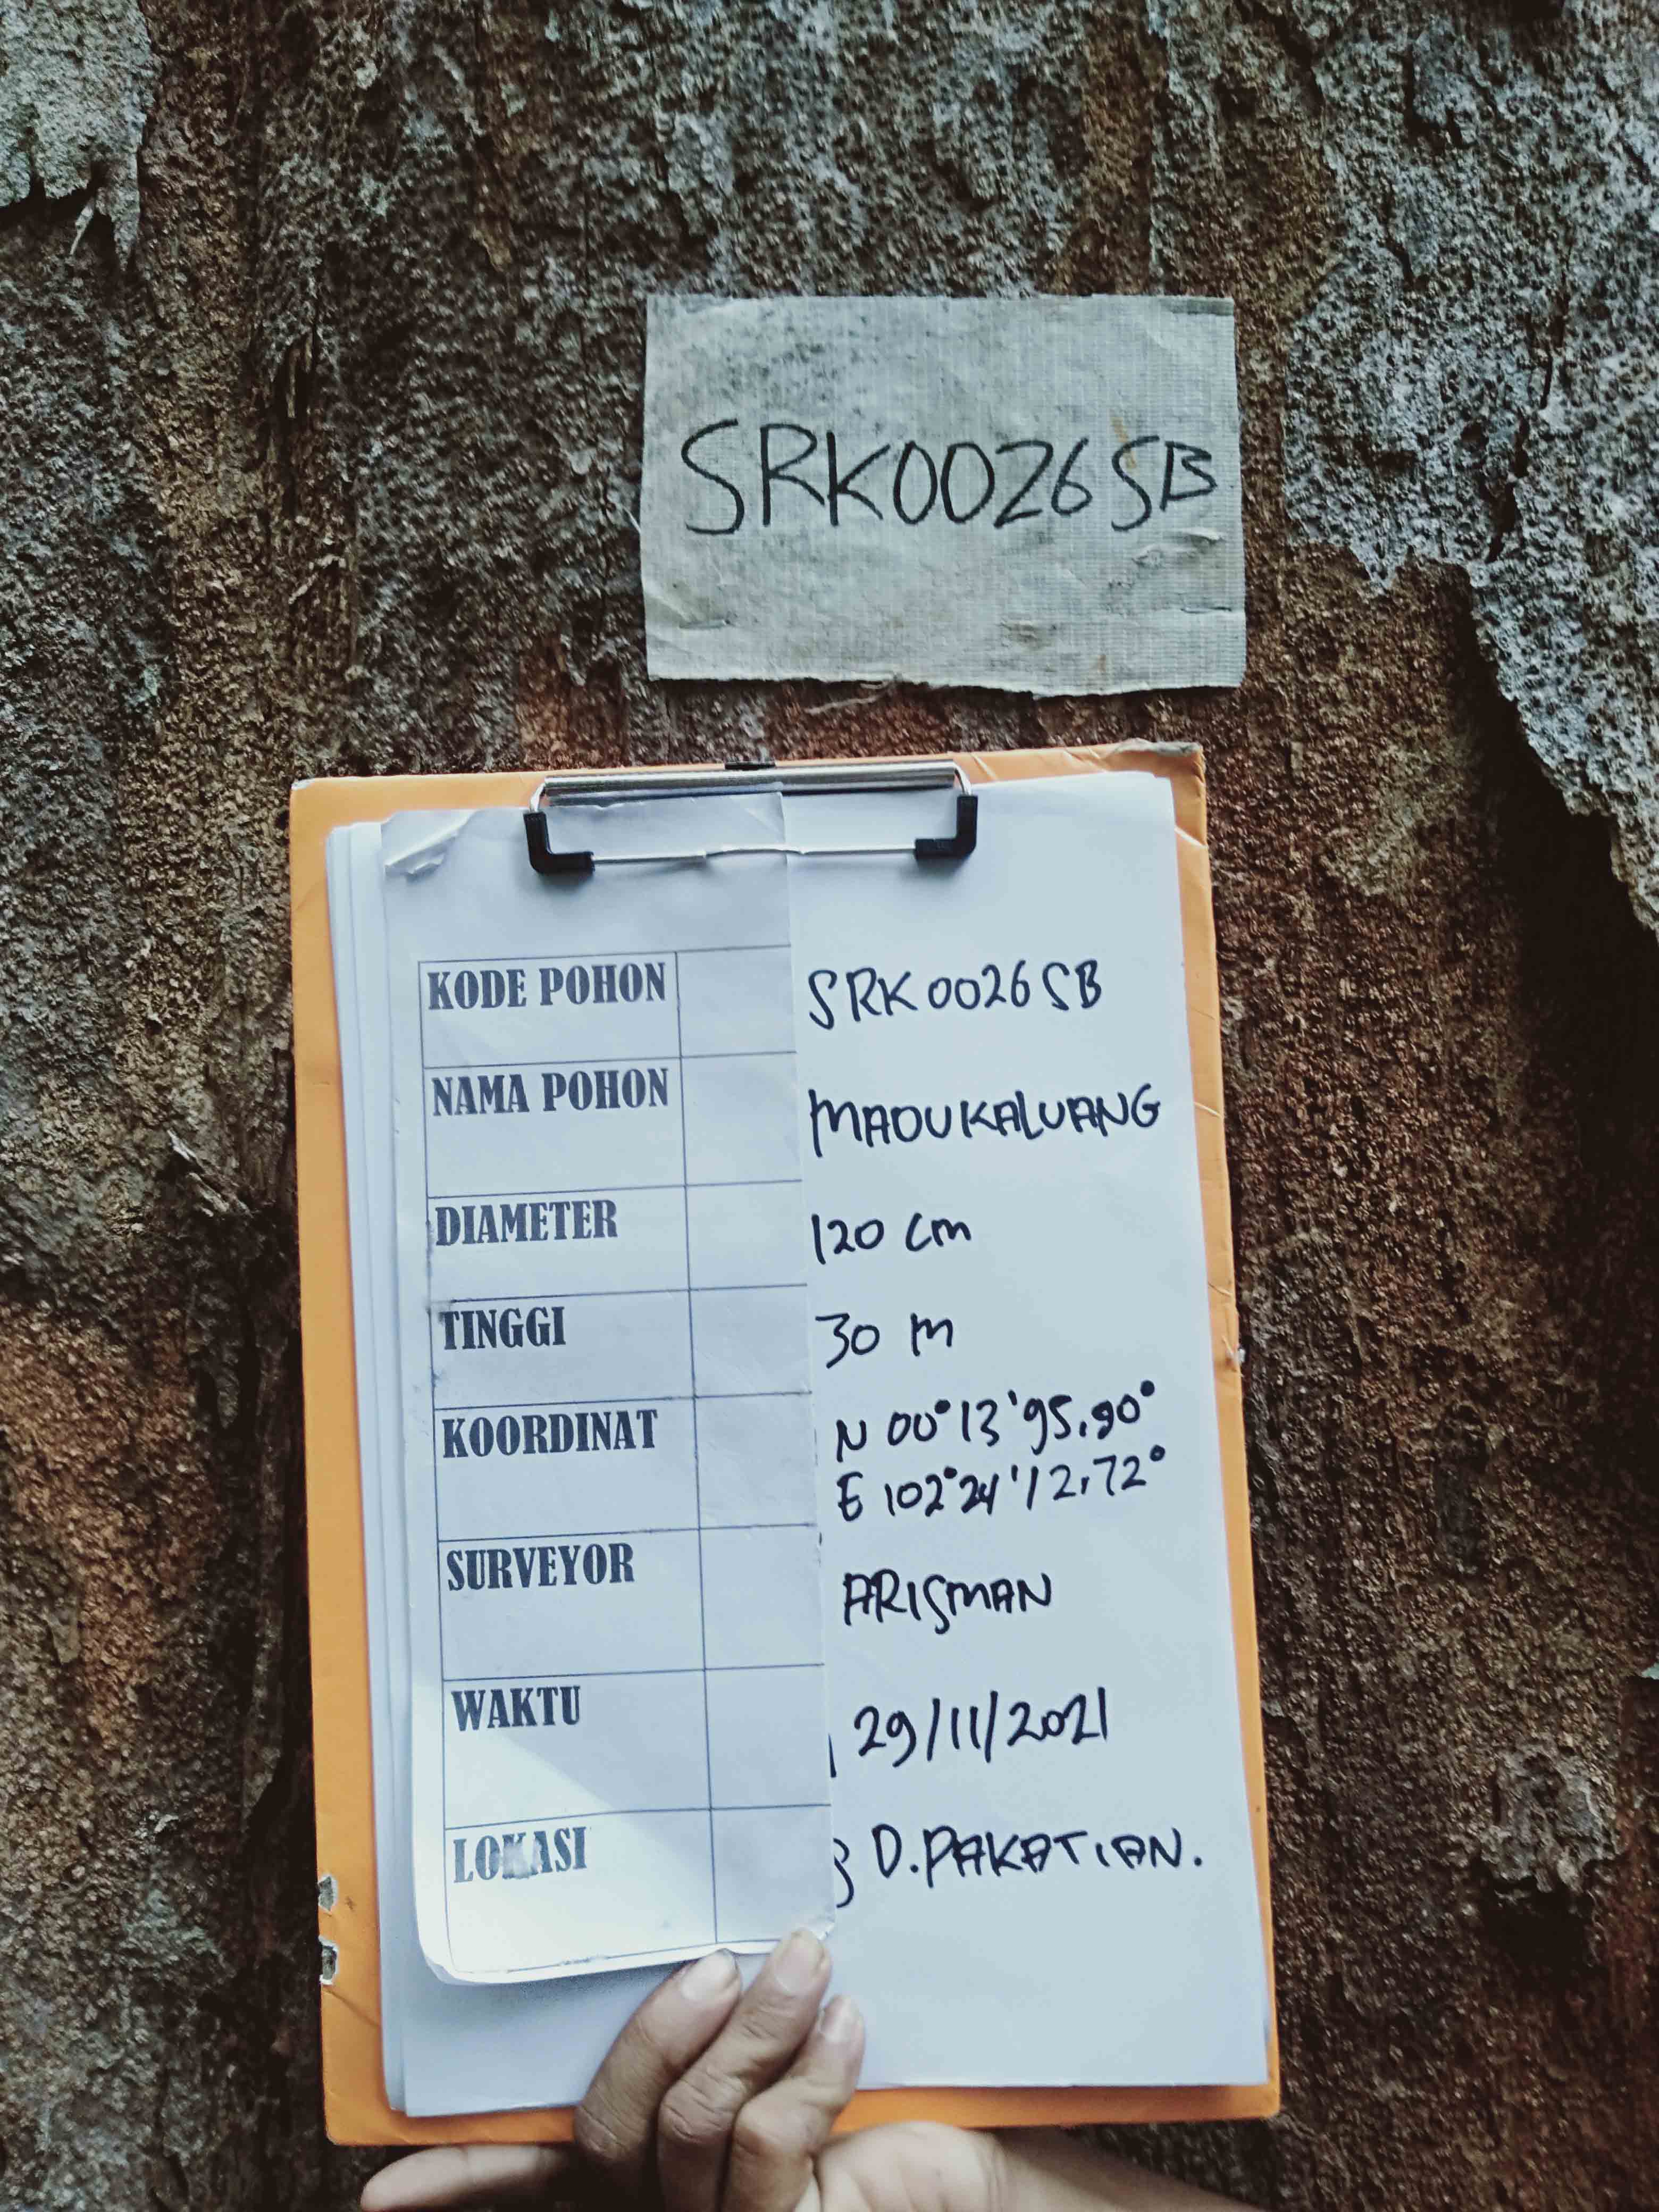 SRK0026SB
KODE POHON SRK0026SB
NAMA POHON MADUKALUANG
DIAMETER 120 cm
TINGGI 30 m
KOORDINAT N 00°13'95,90°
E 102°24'12,72°
SURVEYOR ARISMAN
WAKTU 29/11/2021
LOKASI D.PAKATIAN.